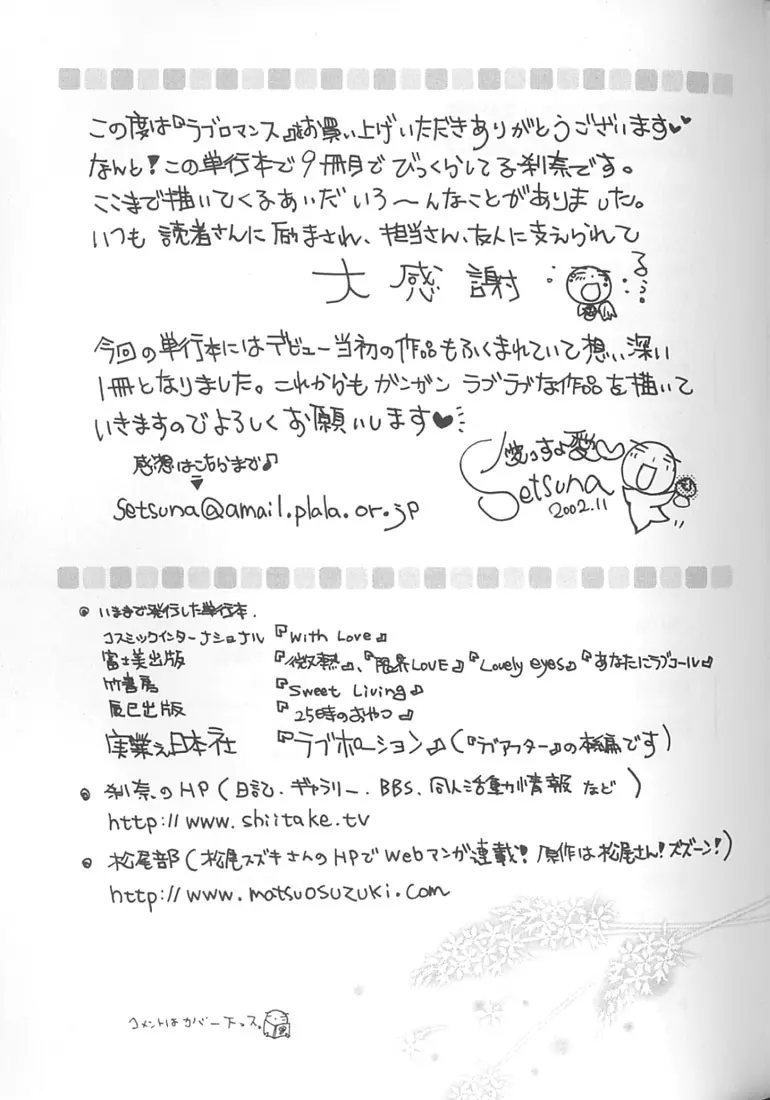 この度は『ラブロマンス』をお買い上げいただきありがとうございます♥♥
なんと!この単行本で9冊目でびっくらしてる刹奈です。
ここまで描いてくるあいだいろ〜んなことがありました。
いつも読者さんに励まされ、担当さん、友人に支えられて
大感謝
る
今回の単行本にはデビュー当初の作品もふくまれていて想い深い
1冊となりました。これからもガンガンラブラブな作品を描いて
いきますのでよろしくお願いします♥
感想はこちらまで♪
▼
setsuna@amail.plala.or.jp
愛っすよ愛〜
Setsuna
2002.11
いままで発行した単行本.
コスミックインターナショナル 『With Love』
富士美出版 『微熱』、『限界LOVE』『Lovely eyes』『あなたにラブコール』
竹書房 『Sweet Living』
辰巳出版 『25時のおやつ』
実業之日本社 『ラブポーション』(『ラブアフター』の本編です)
刹奈のHP(日記・ギャラリー・BBS、同人活動情報など)
http://www.shiitake.tv
松尾部(松尾スズキさんのHPでWebマンガ連載!原作は松尾さん!ズズーン!)
http://www.matsuosuzuki.com
コメントはカバー下っス。